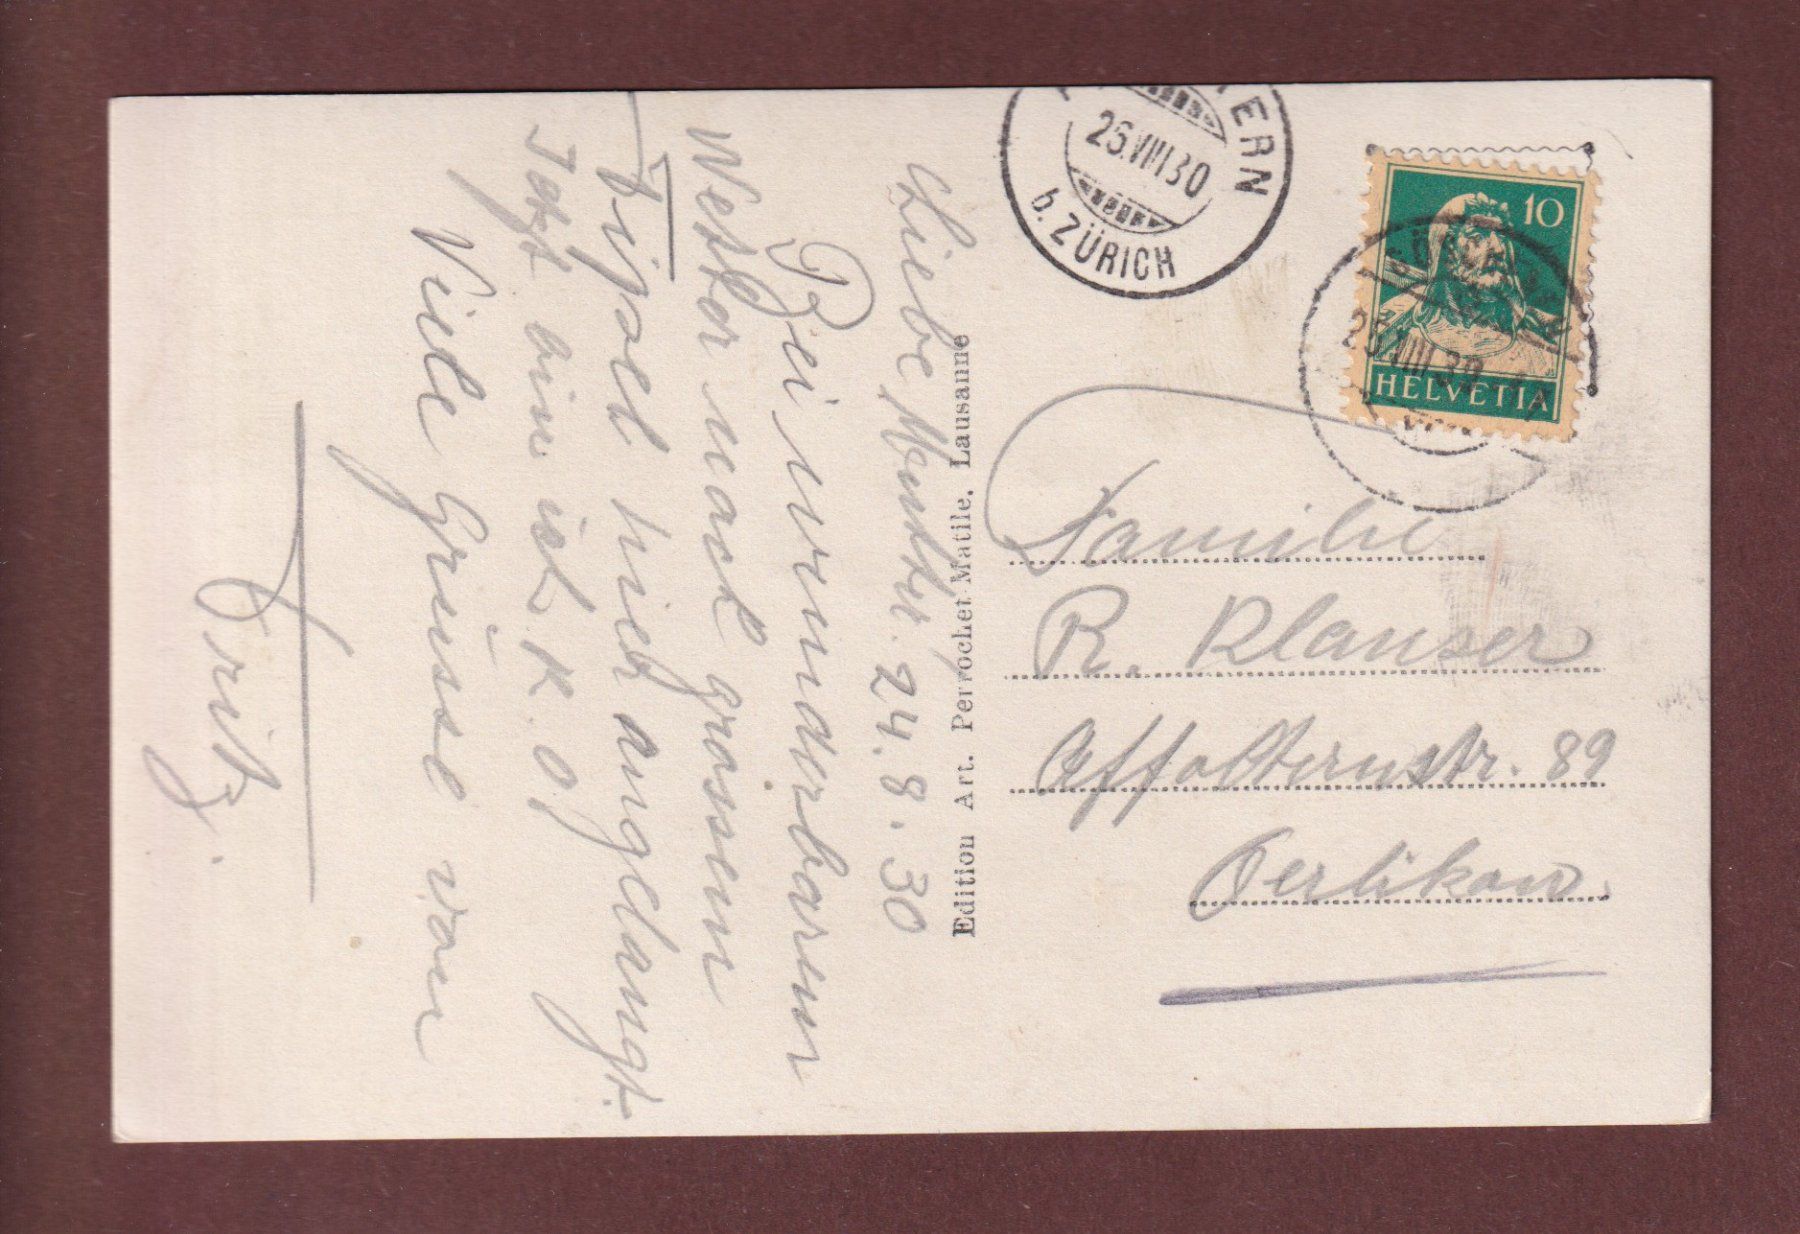 Liebe Mutter. 24.8.30
Bei wunderbarem
Wetter nach grossem
hier angelangt.
Jetzt bin ich k.o.
Viele Grüsse von
Fritz.
Edition Art. Perrochet Matile, Lausanne
ERN
25.VIII.30
b. ZÜRICH
10
HELVETIA
25.VIII.30
Familie
R. Klauser
Affolternstr. 89
Oerlikon.